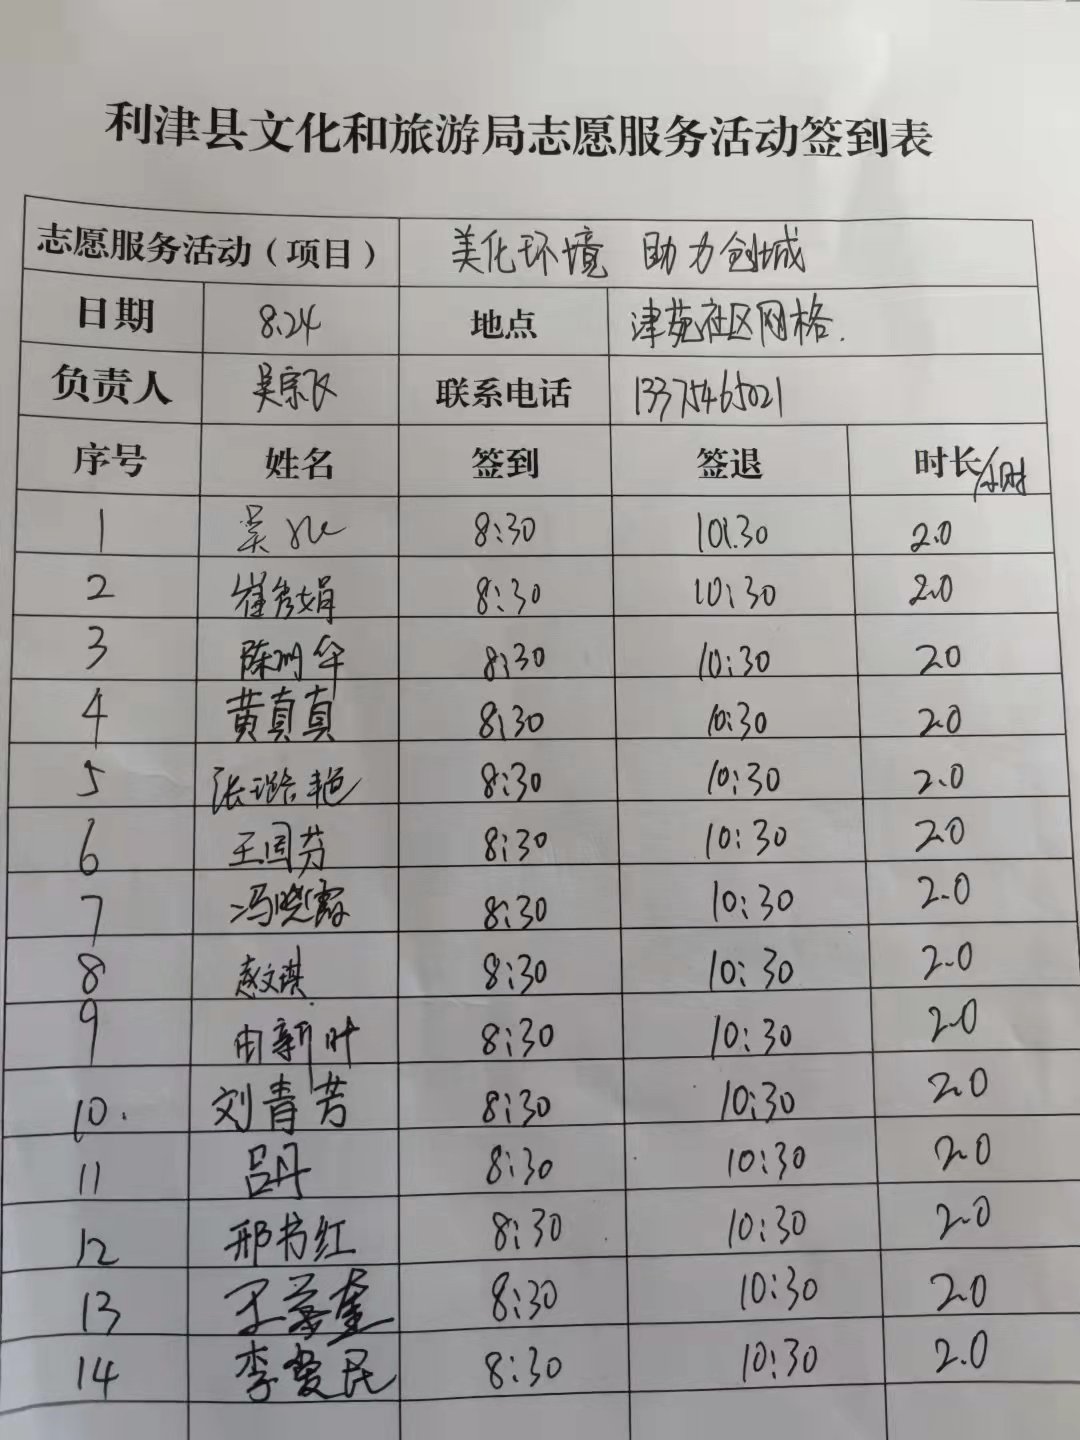 利津县文化和旅游局志愿服务活动签到表
志愿服务活动（项目） 美化环境 助力创城
日期 8.24 地点 津苑社区网格.
负责人 吴宗飞 联系电话 13375465021
序号 姓名 签到 签退 时长/小时
1 吴 8:30 10:30 2.0
2 崔秀娟 8:30 10:30 2.0
3 陈 华 8:30 10:30 20
4 黄真真 8:30 10:30 2.0
5 张璐艳 8:30 10:30 2.0
6 王国芬 8:30 10:30 2.0
7 冯晓霞 8:30 10:30 2.0
8 赵文琪 8:30 10:30 2.0
9 由新叶 8:30 10:30 2.0
10. 刘青芳 8:30 10:30 2.0
11 吕丹 8:30 10:30 2.0
12 邢书红 8:30 10:30 2.0
13 王 奎 8:30 10:30 2.0
14 李爱民 8:30 10:30 2.0